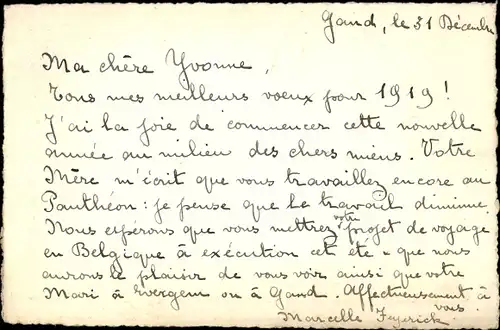 Gand, le 31 Décembre
Ma chère Yvonne,
Tous mes meilleurs voeux pour 1919 !
J'ai la joie de commencer cette nouvelle
année au milieu des chers miens. Votre
Mère m'écrit que vous travaillez encore au
Panthéon : je pense que le travail diminue.
Nous espérons que vous mettrez votre projet de voyage
en Belgique à exécution cet été - que nous
aurons le plaisir de vous voir ainsi que votre
Mari à Evergem ou à Gand. Affectueusement à
vous.
Marcelle Feyerick